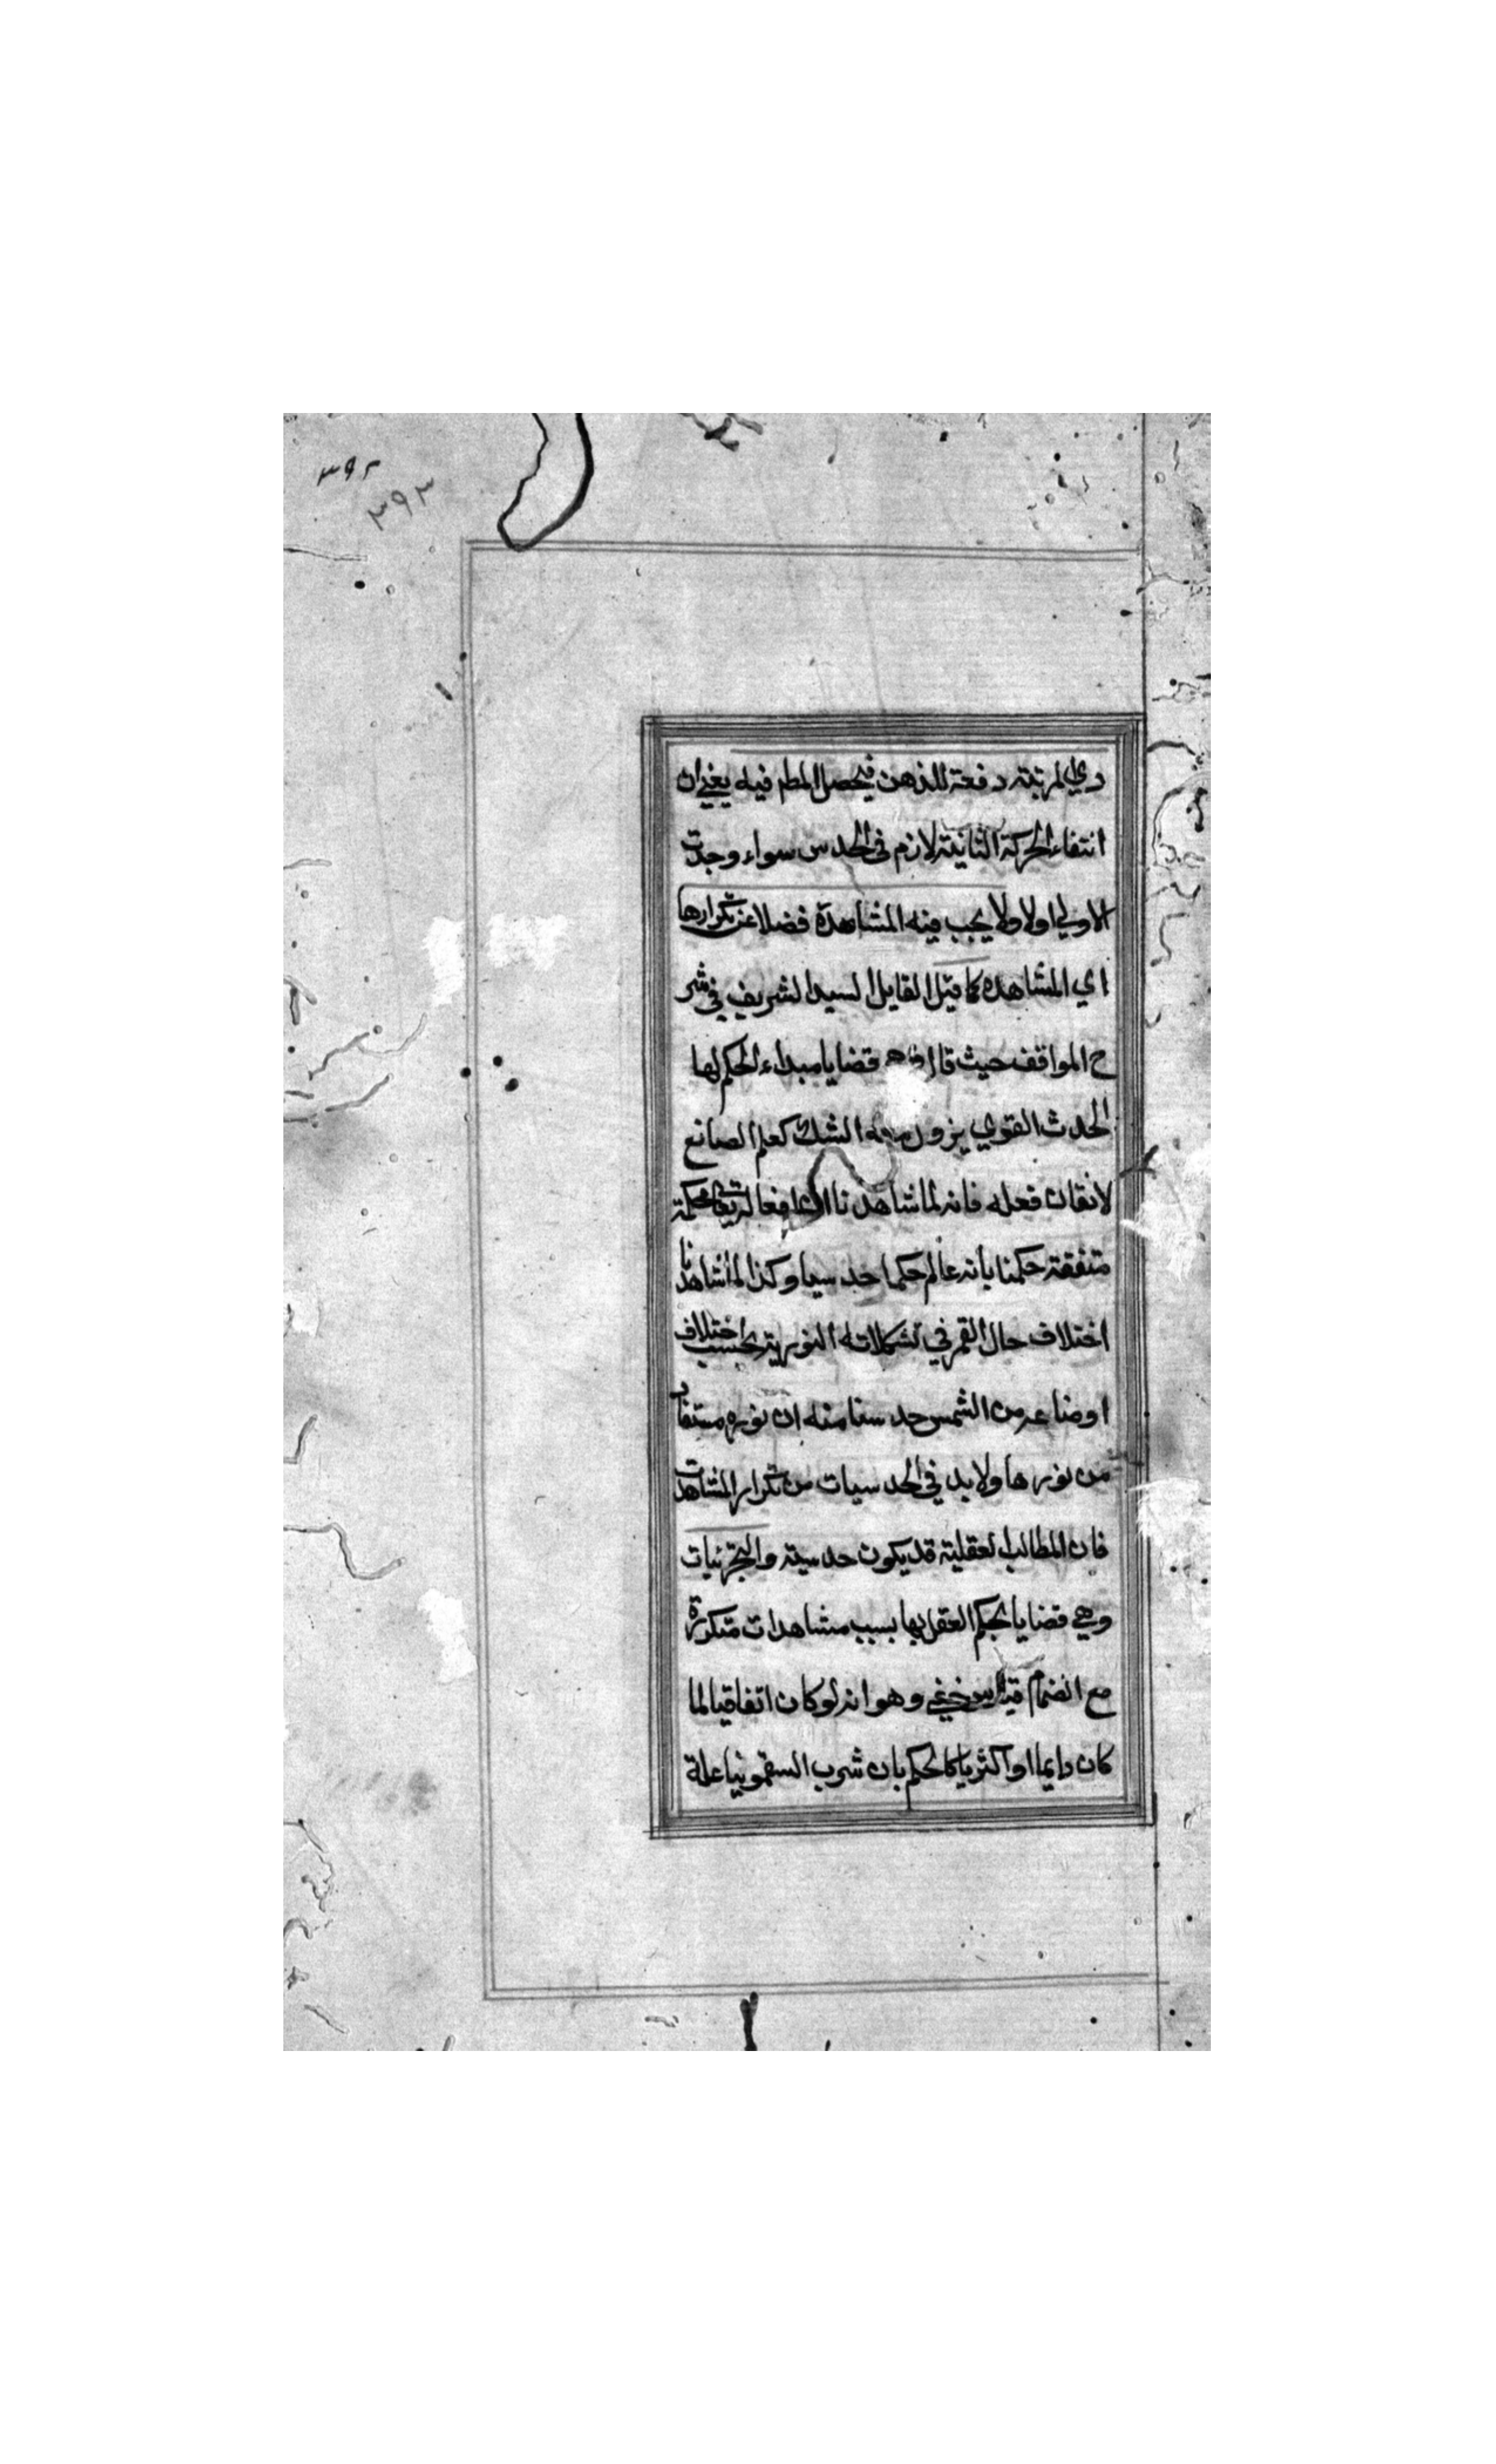 ٣٩٢
٣٩٣
دي المرتبة دفعة للذهن فيحصل المطم فيه يعني ان
انتفاء الحركة الثانية لازم في الحدس سواء وجدت
الاولي اولا ولا يجب فيه المشاهدة فضلا عن تكرارها
اي المشاهده كما قيل القايل السيد الشريف في شر
ح المواقف حيث قال قضايا مبداء الحكم لها
الحدث القوي يزول معه الشك كعلم الصانع
لاتقان فعله فانه لما شاهدنا ان افعاله محكمة
متفقة حكمنا بانه عالم حكما حدسيا وكذا لما شاهدنا
اختلاف حال القمر في تشكلاته النورية بحسب اختلاف
اوضاعه من الشمس حدسنا منه ان نوره مستفاد
من نورها ولابد في الحدسيات من تكرار المشاهدت
فان المطالب العقلية قد يكون حدسية والتجرئيات
وهي قضايا يحكم العقل بها بسبب مشاهدات متكررة
مع انضمام قياس خفي وهو انه لو كان اتفاقيا لما
كان دايما او اكثريا كالحكم بان شرب السقمونيا علة